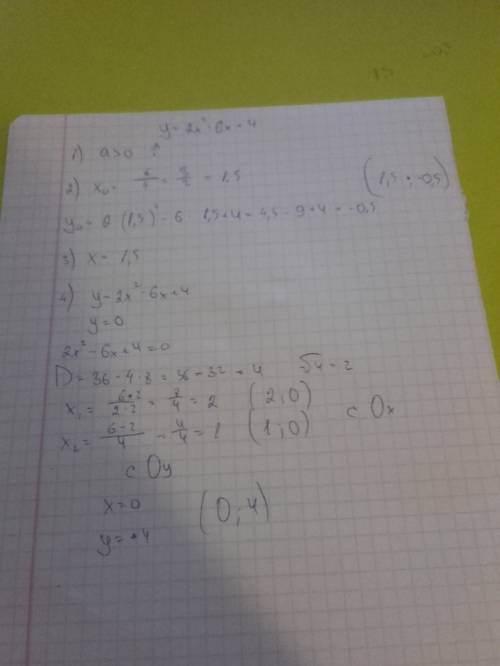 y = 2x² - 6x + 4
1) a>0 ↑
2) x₀ = 6/4 = 3/2 = 1,5 (1,5 ; -0,5)
y₀ = 2 (1,5)² - 6 1,5 + 4 = 4,5 - 9 + 4 = -0,5
3) x = 1,5
4) y = 2x² - 6x + 4
y = 0
2x² - 6x + 4 = 0
D = 36 - 4·8 = 36 - 32 = 4 √4 = 2
x₁ = 6+2/2·2 = 8/4 = 2 (2;0)
x₂ = 6-2/4 = 4/4 = 1 (1;0) с Ox
с Oy
x = 0 (0;4)
y = 4